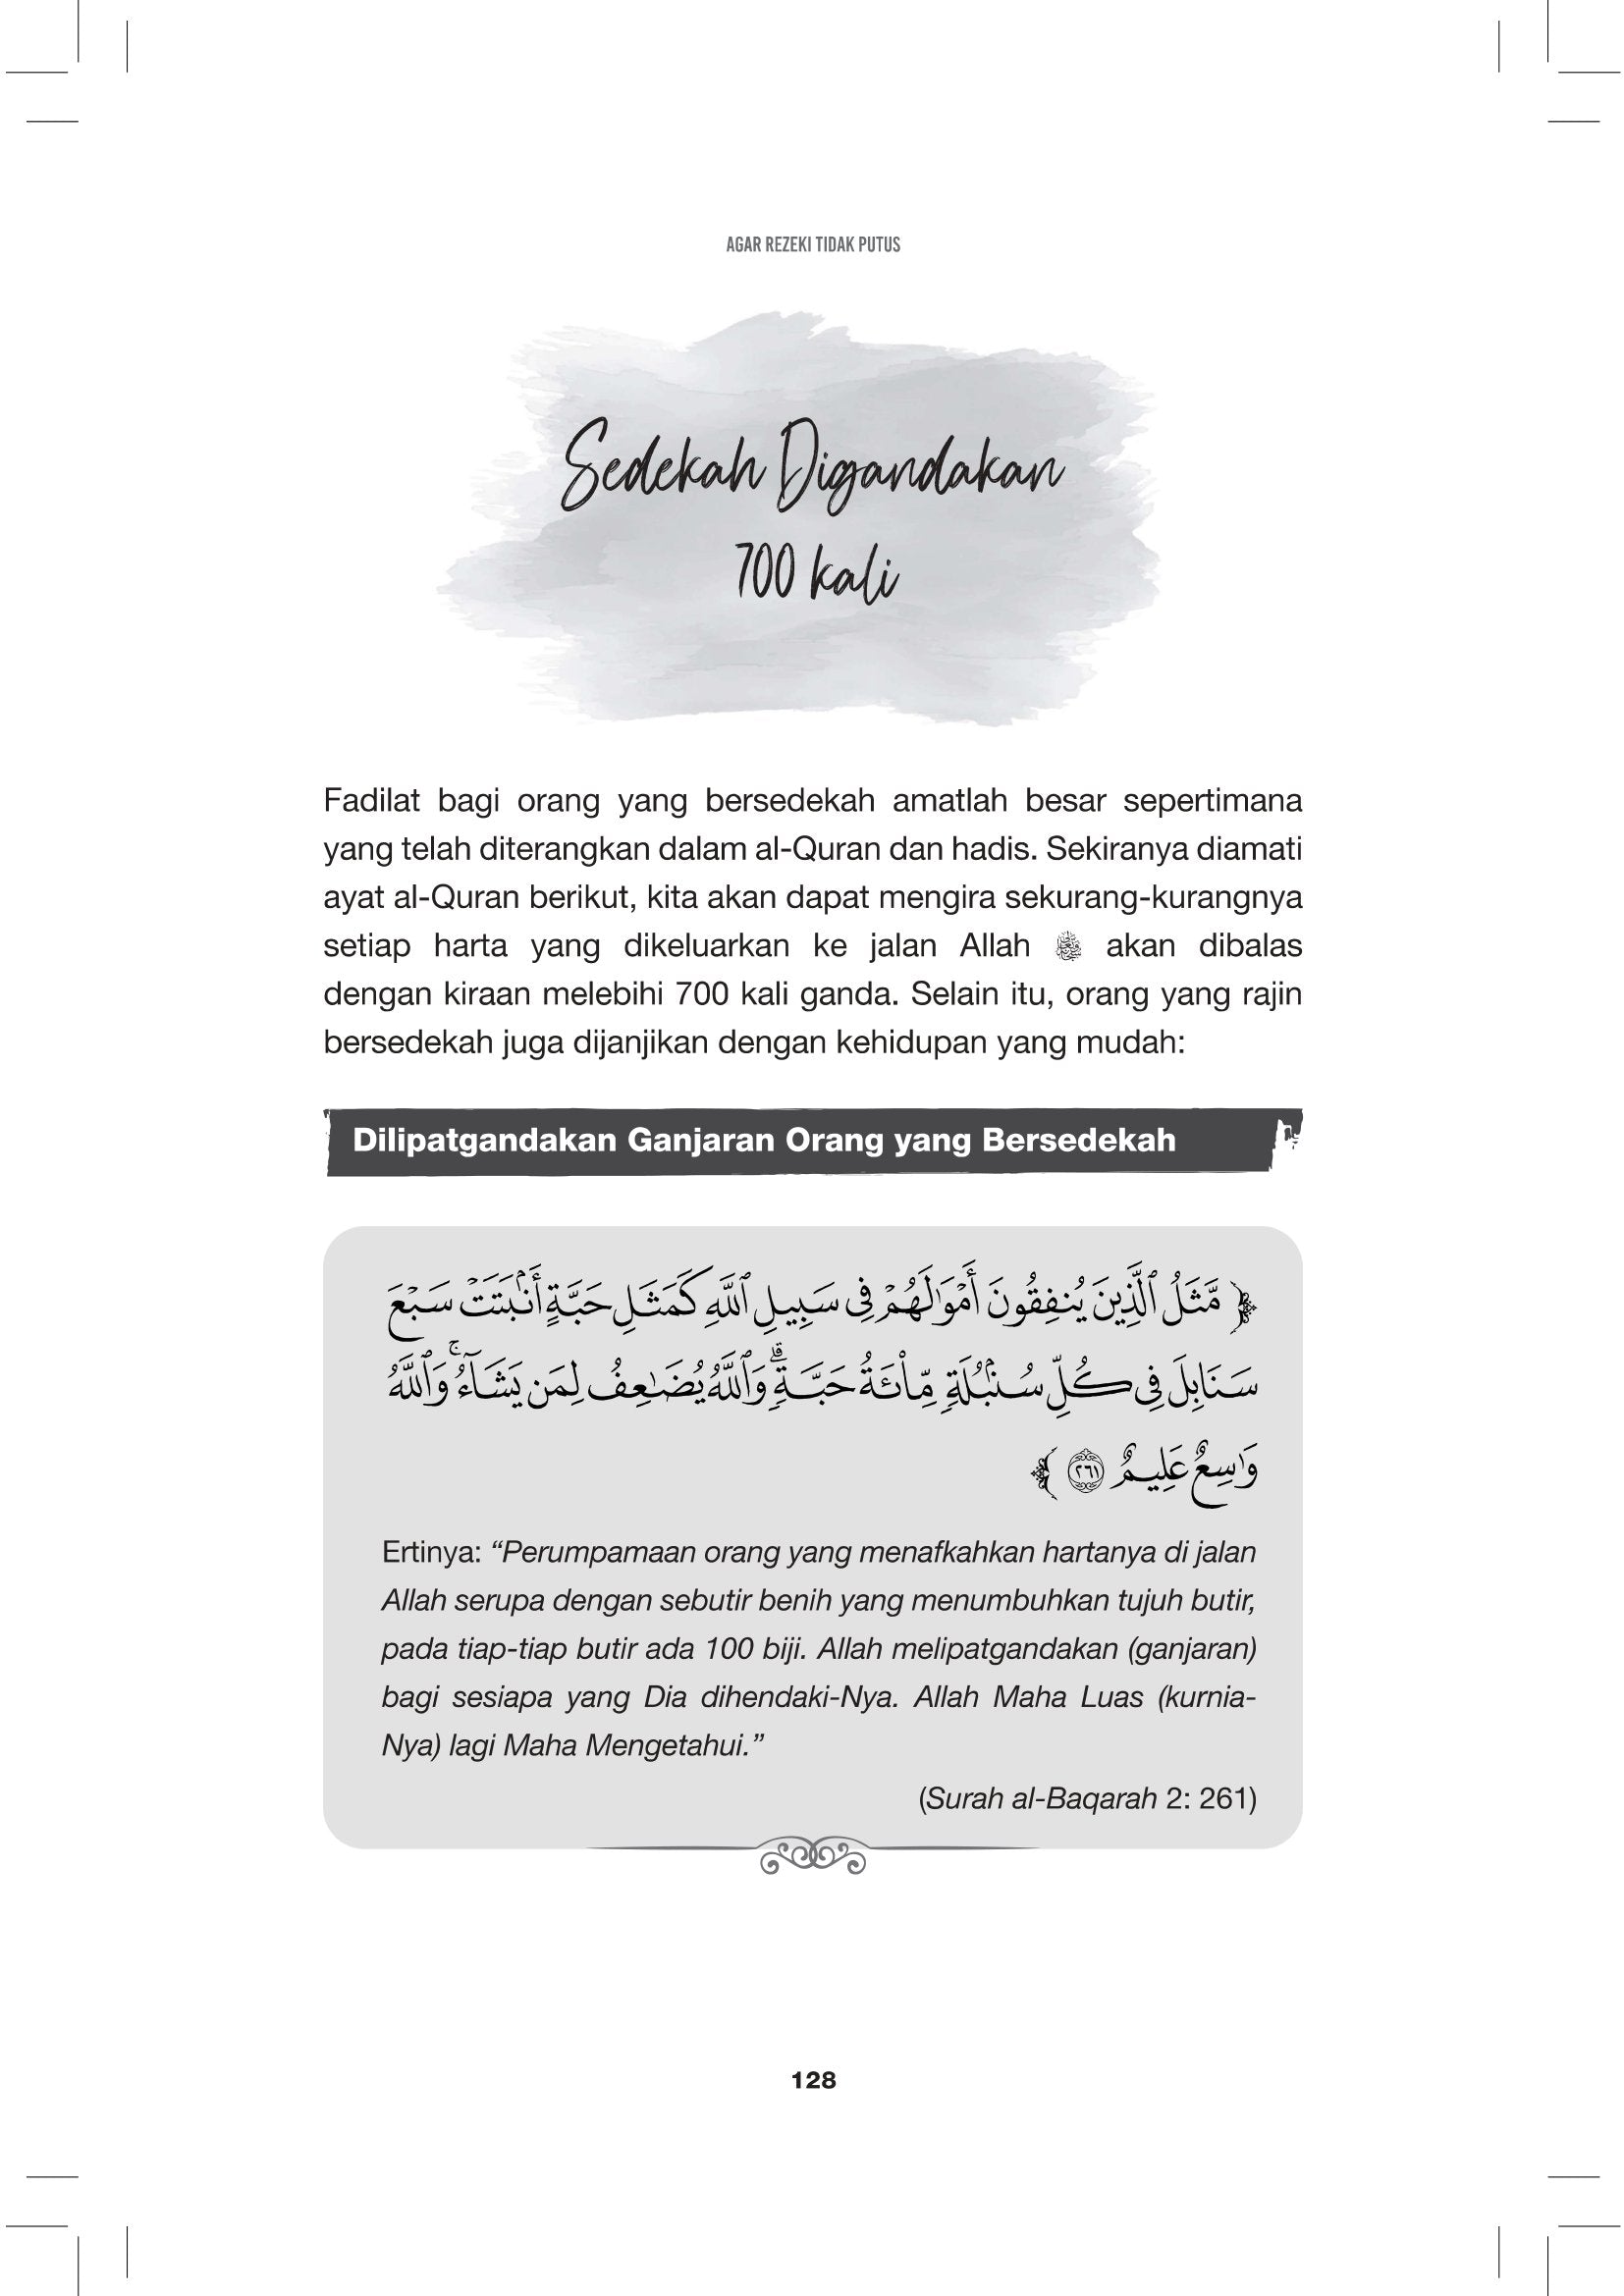 AGAR REZEKI TIDAK PUTUS
Sedekah Digandakan
700 kali
Fadilat bagi orang yang bersedekah amatlah besar sepertimana
yang telah diterangkan dalam al-Quran dan hadis. Sekiranya diamati
ayat al-Quran berikut, kita akan dapat mengira sekurang-kurangnya
setiap harta yang dikeluarkan ke jalan Allah ﷾ akan dibalas
dengan kiraan melebihi 700 kali ganda. Selain itu, orang yang rajin
bersedekah juga dijanjikan dengan kehidupan yang mudah:
Dilipatgandakan Ganjaran Orang yang Bersedekah
﴿ مَّثَلُ ٱلَّذِينَ يُنفِقُونَ أَمْوَٰلَهُمْ فِى سَبِيلِ ٱللَّهِ كَمَثَلِ حَبَّةٍ أَنۢبَتَتْ سَبْعَ
سَنَابِلَ فِى كُلِّ سُنۢبُلَةٍ مِّا۟ئَةُ حَبَّةٍ ۗ وَٱللَّهُ يُضَـٰعِفُ لِمَن يَشَآءُ ۚ وَٱللَّهُ
وَٰسِعٌ عَلِيمٌ ٢٦١ ﴾
Ertinya: “Perumpamaan orang yang menafkahkan hartanya di jalan
Allah serupa dengan sebutir benih yang menumbuhkan tujuh butir,
pada tiap-tiap butir ada 100 biji. Allah melipatgandakan (ganjaran)
bagi sesiapa yang Dia dihendaki-Nya. Allah Maha Luas (kurnia-
Nya) lagi Maha Mengetahui.”
(Surah al-Baqarah 2: 261)
128